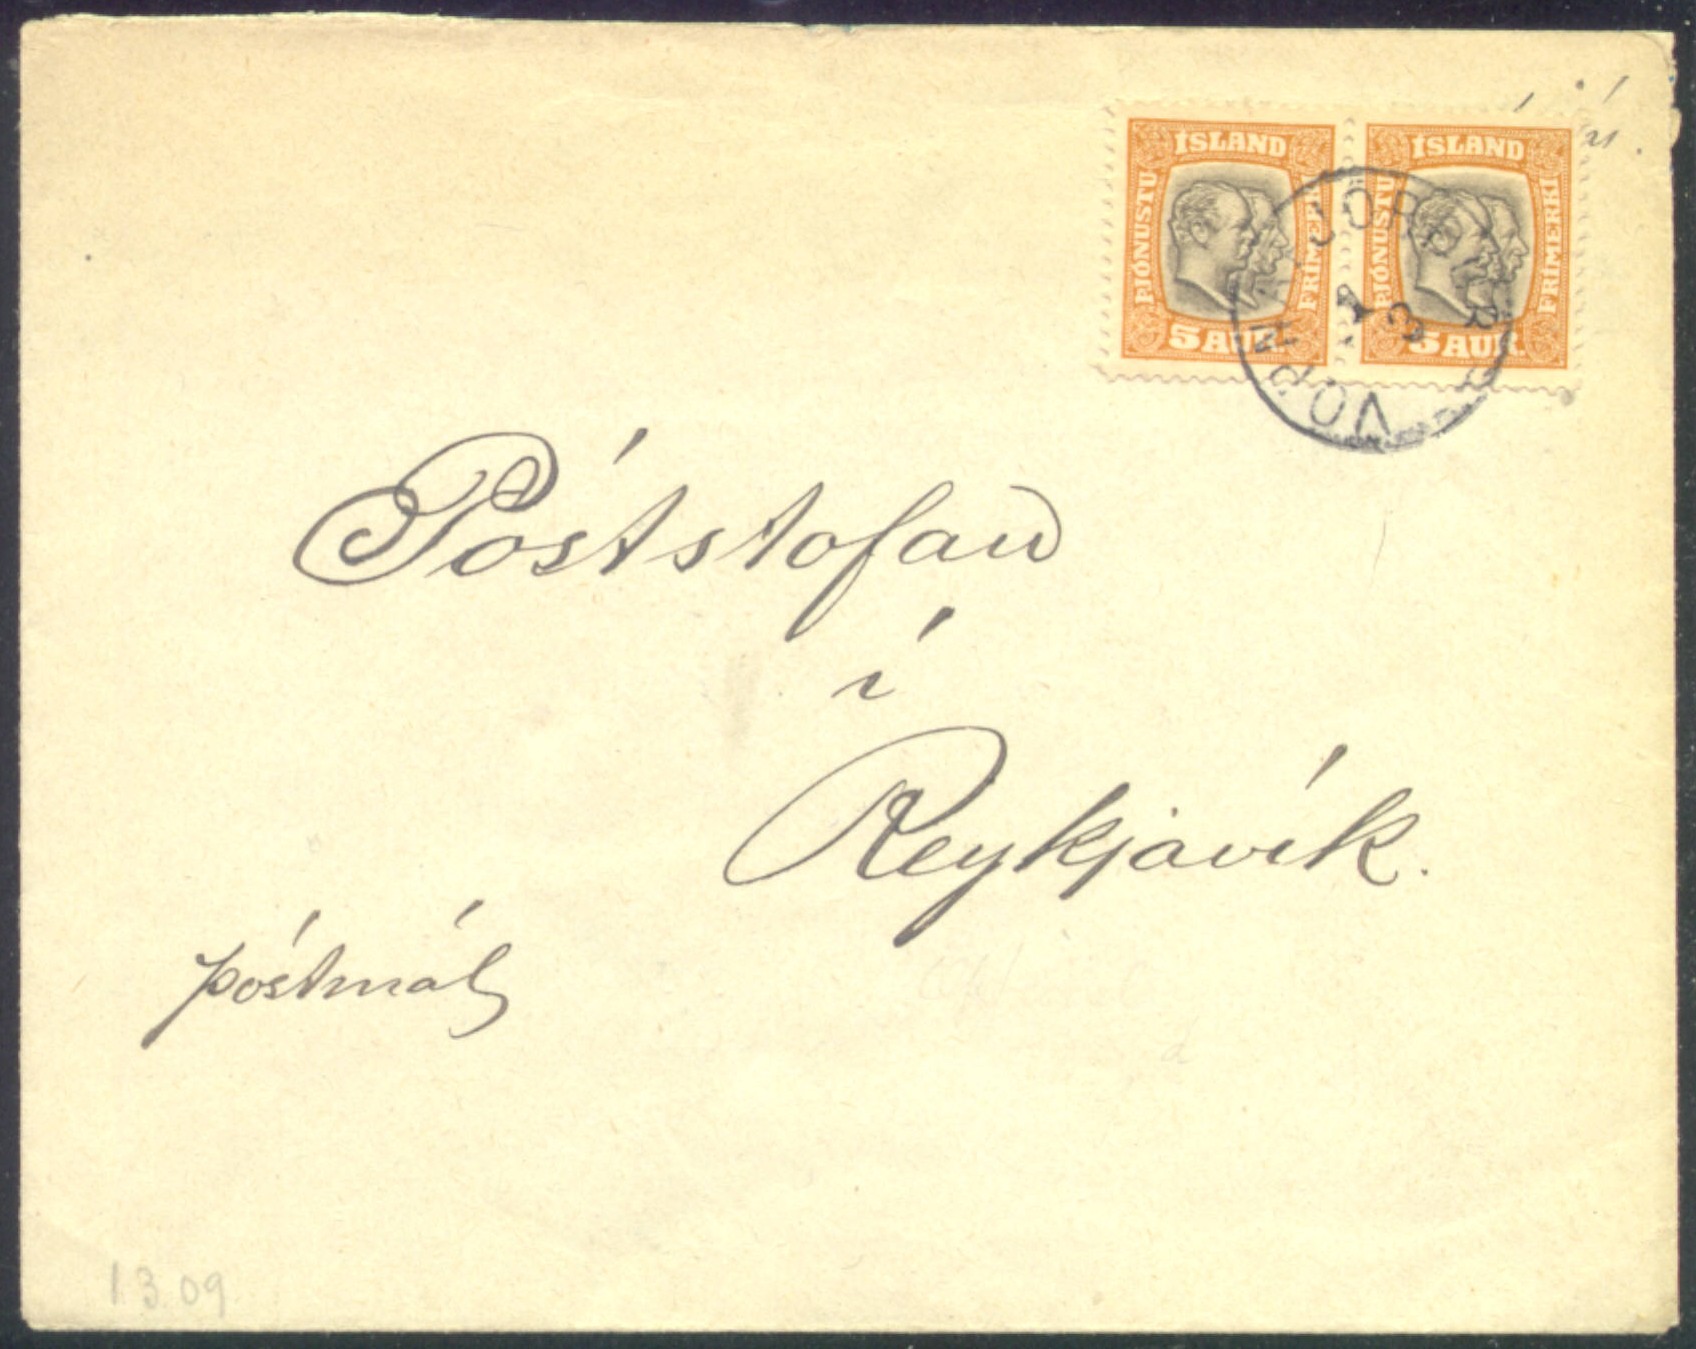 ÍSLAND
ÞJÓNUSTU
FRÍMERKI
5 AUR.
ÍSLAND
ÞJÓNUSTU
FRÍMERKI
5 AUR.
1
3
Póststofan
í
Reykjavík.
póstmál
1.3 09